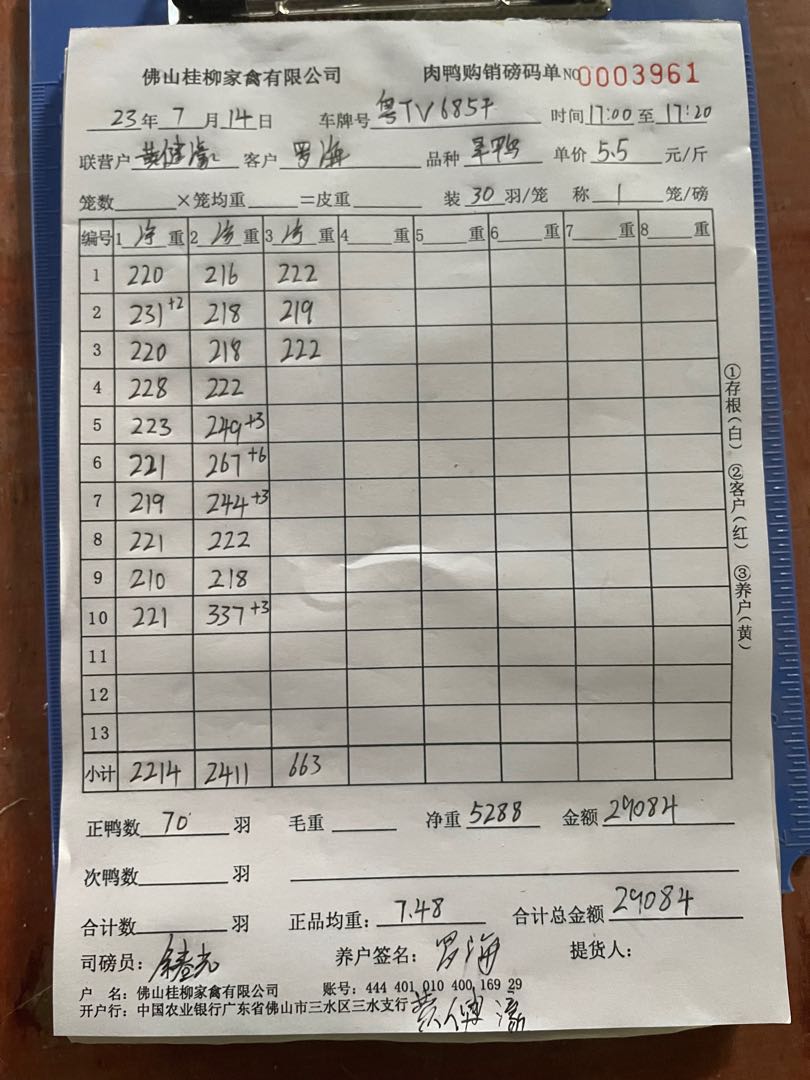 佛山桂柳家禽有限公司 肉鸭购销磅码单 NO 0003961
23年 7月14日 车牌号 粤TV6857 时间17:00至17:20
联营户 黄健濠 客户 罗海 品种 单价 5.5 元/斤
笼数 ×笼均重 =皮重 装 30 羽/笼 称 1 笼/磅
编号 1 净 重 2 净 重 3 净 重 4 重 5 重 6 重 7 重 8 重
1 220 216 222
2 231+2 218 219
3 220 218 222
4 228 222
5 223 249+3
6 221 267+6
7 219 244+3
8 221 222
9 210 218
10 221 337+3
11
12
13
小计 2214 2411 663
正鸭数 70 羽 毛重 净重 5288 金额 29084
次鸭数 羽
合计数 羽 正品均重: 7.48 合计总金额 29084
司磅员: 养户签名: 罗海 提货人:
户 名: 佛山桂柳家禽有限公司 账号: 444 401 010 400 169 29
开户行: 中国农业银行广东省佛山市三水区三水支行 黄健濠
①存根(白) ②客户(红) ③养户(黄)